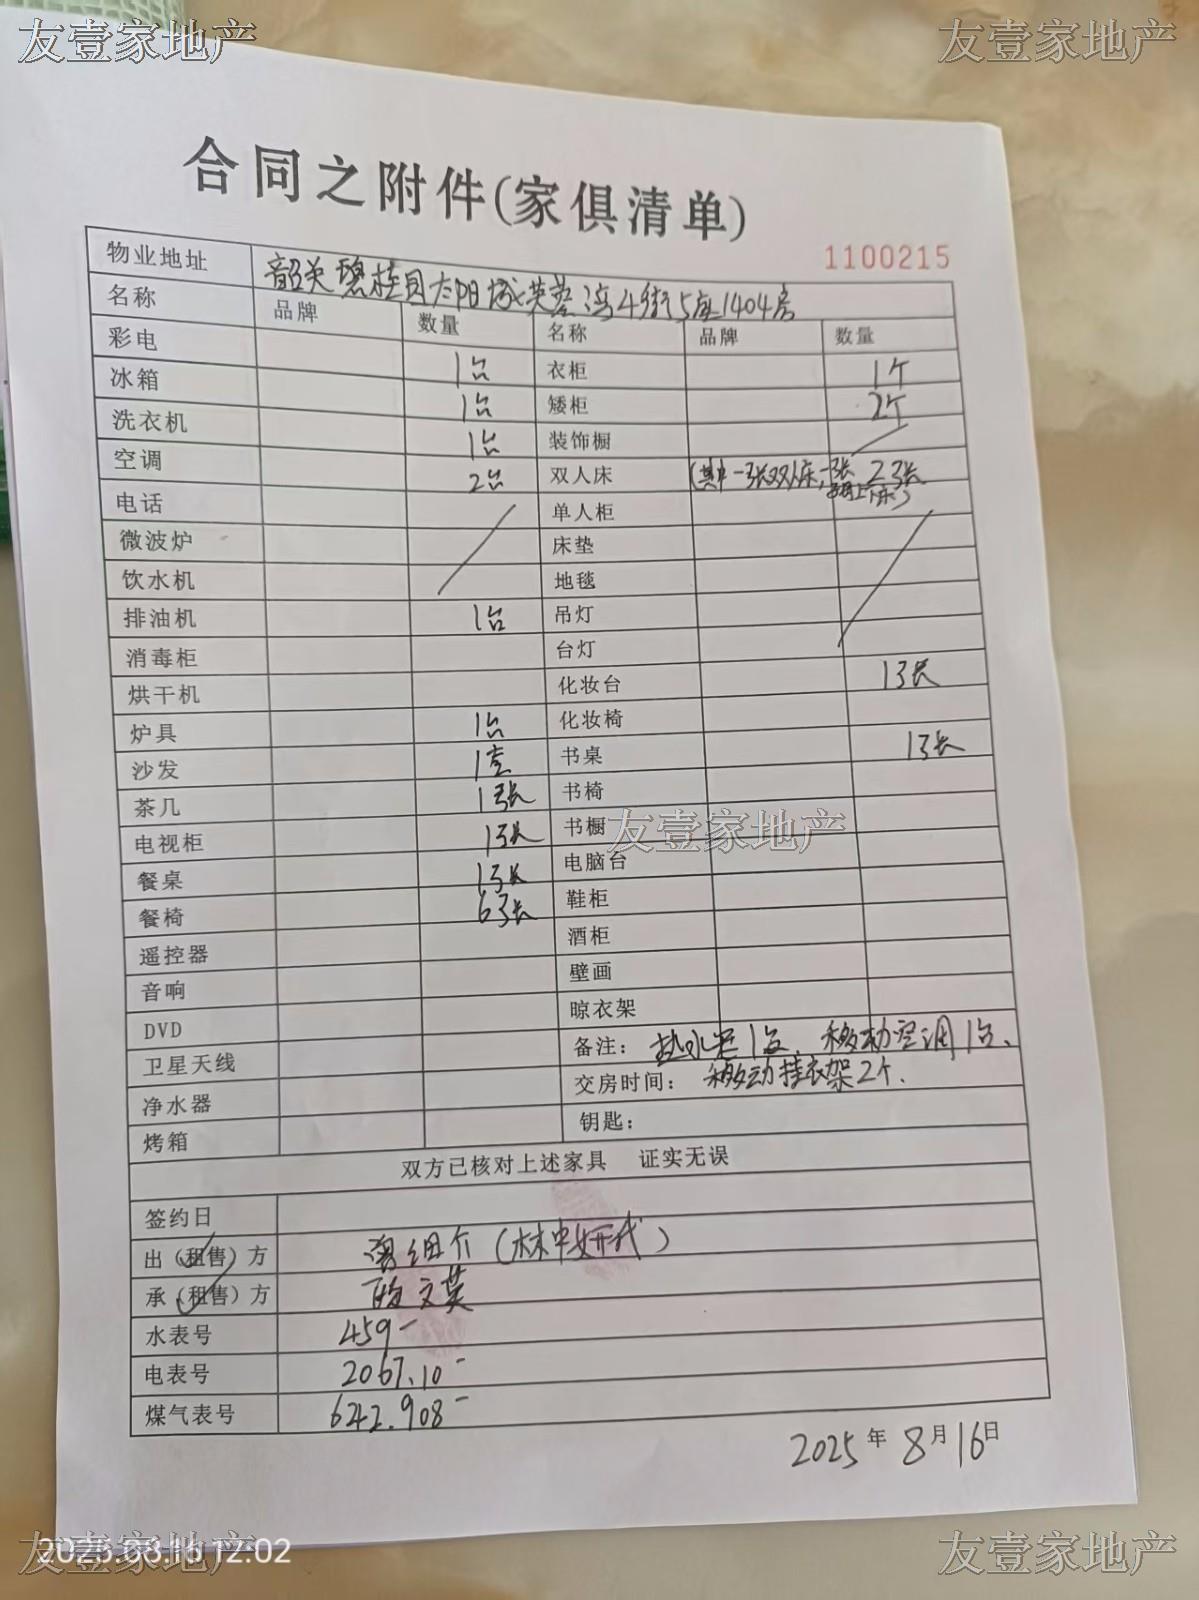 友壹家地产 友壹家地产
合同之附件(家俱清单)
1100215
物业地址 韶关碧桂园太阳城芙蓉湾4街5座1404房
名称 品牌 数量 名称 品牌 数量
彩电 1台 衣柜 1个
冰箱 1台 矮柜 2个
洗衣机 1台 装饰橱
空调 2台 双人床 (其中一张双人床,一张 2张
电话 单人柜
微波炉 床垫
饮水机 地毯
排油机 1台 吊灯
消毒柜 台灯
烘干机 化妆台 1张
炉具 1台 化妆椅
沙发 1套 书桌 1张
茶几 1张 书椅
电视柜 1张 书橱
友壹家地产
餐桌 1张 电脑台
餐椅 6张 鞋柜
遥控器 酒柜
音响 壁画
DVD 晾衣架
卫星天线 备注: 热水器1台、移动空调1台、
净水器 交房时间: 移动挂衣架2个.
烤箱 钥匙:
双方已核对上述家具 证实无误
签约日
出(租售)方
承(租售)方 文英
水表号 459
电表号 2067.10
煤气表号 642.908
2025年8月16日
2025.08.16 12:02
友壹家地产 友壹家地产